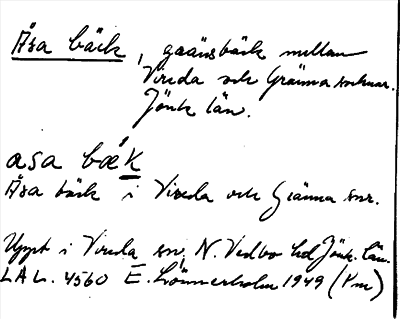 Åsa bäck, gränsbäck mellan
Vireda och Gränna socknar.
Jönk. län.
åsa bæ̀k
Åsa bäck i Vireda och Gränna snr.
Uppt i Vireda sn, N. Vedbo hd Jönk. län.
LAL. 4560 E. Lönnerholm 1949 (Km)